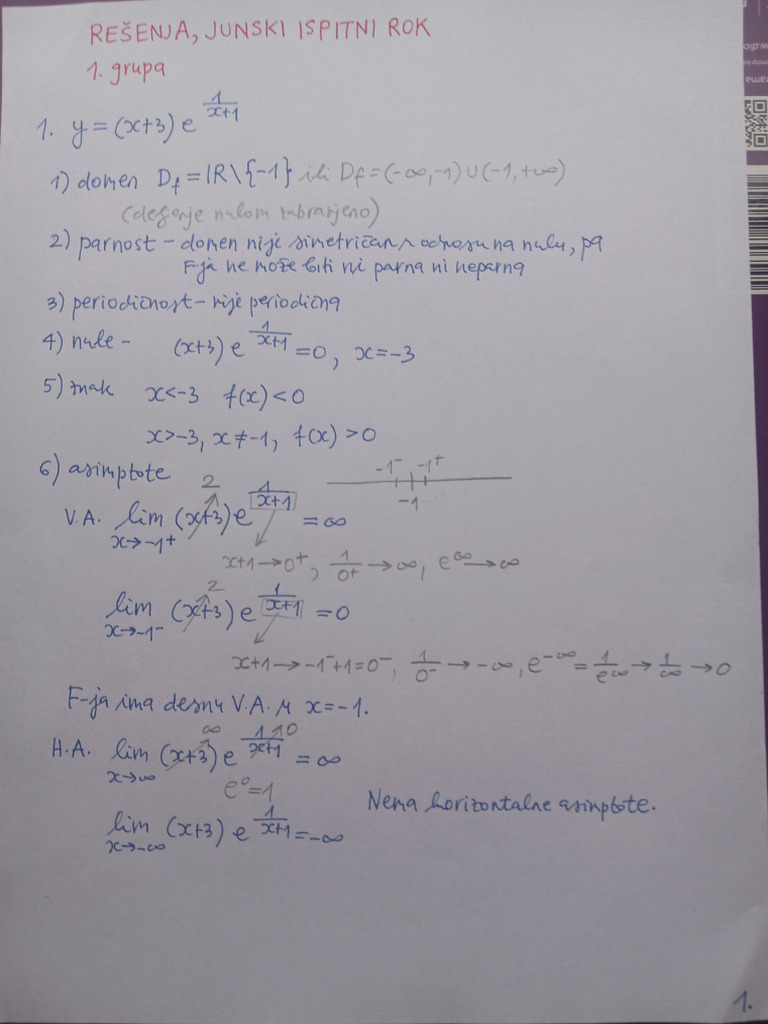 REŠENJA, JUNSKI ISPITNI ROK
1. grupa
1. y = (x+3) e^{\frac{1}{x+1}}
1) domen D_f = ℝ\{-1} ili D_f = (-∞,-1) ∪ (-1,+∞)
(delenje nulom zabranjeno)
2) parnost – domen nije simetričan u odnosu na nulu, pa
F-ja ne može biti ni parna ni neparna
3) periodičnost – nije periodična
4) nule – (x+3) e^{\frac{1}{x+1}} = 0, x = -3
5) znak x<-3 f(x) < 0
x>-3, x ≠ -1, f(x) > 0
6) asimptote
-1⁻ -1⁺
-1
2
V.A. lim_{x→-1⁺} (x+3) e^{\frac{1}{x+1}} = ∞
x+1 → 0⁺, \frac{1}{0⁺} → ∞, e^∞ → ∞
2
lim_{x→-1⁻} (x+3) e^{\frac{1}{x+1}} = 0
x+1 → -1⁻+1 = 0⁻, \frac{1}{0⁻} → -∞, e^{-∞} = \frac{1}{e^∞} → \frac{1}{∞} → 0
F-ja ima desnu V.A. u x = -1.
∞ 0
H.A. lim_{x→∞} (x+3) e^{\frac{1}{x+1}} = ∞
e⁰ = 1
Nema horizontalne asimptote.
lim_{x→-∞} (x+3) e^{\frac{1}{x+1}} = -∞
1.